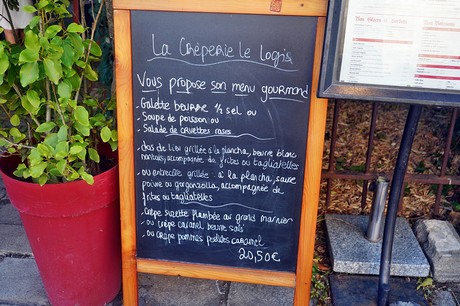 La Crêperie le Logis
Vous propose son menu gourmand
- Galette beurre 1/2 sel ou
- Soupe de poisson ou
- Salade de crevettes roses
- dos de lieu grillé à la plancha, beurre blanc
nantais, accompagnée de frites ou tagliatelles
- ou entrecôte grillée à la plancha, sauce
poivre ou gorgonzolla, accompagnée de
frites ou tagliatelles
- Crêpe suzette flambée au grand marnier
- ou crêpe caramel beurre salé
- ou crêpe pommes poêlées caramel
20,50€